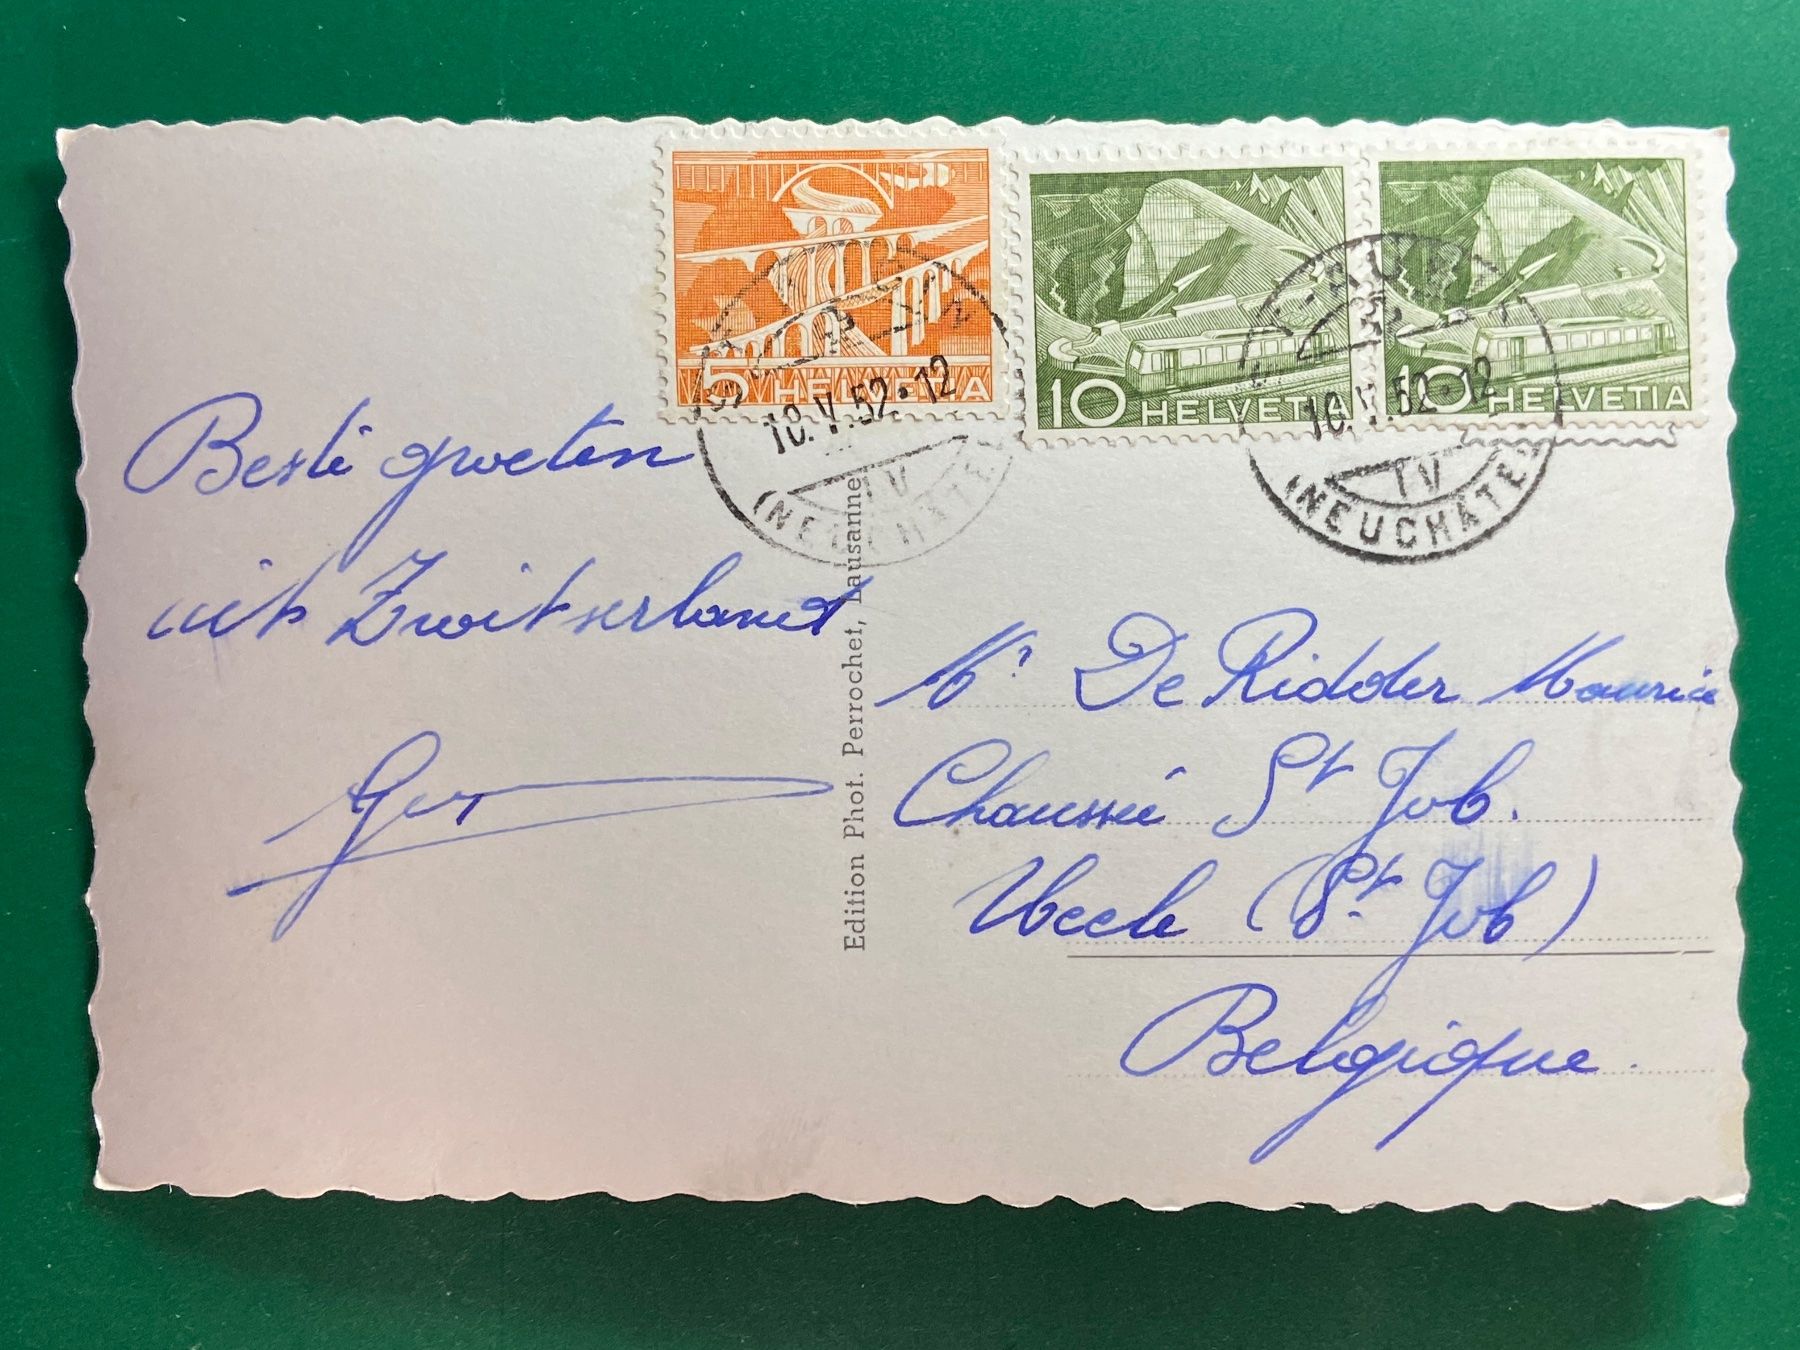 5 HELVETIA
10 HELVETIA
10 HELVETIA
10.V.52·12
IV
(NEUCHÂTEL)
10.V.52·12
IV
(NEUCHÂTEL)
Beste groeten
uit Zwitserland
Edition Phot. Perrochet, Lausanne
Mr De Ridder Maurice
Chaussée St Job.
Uccle (St Job)
Belgique.